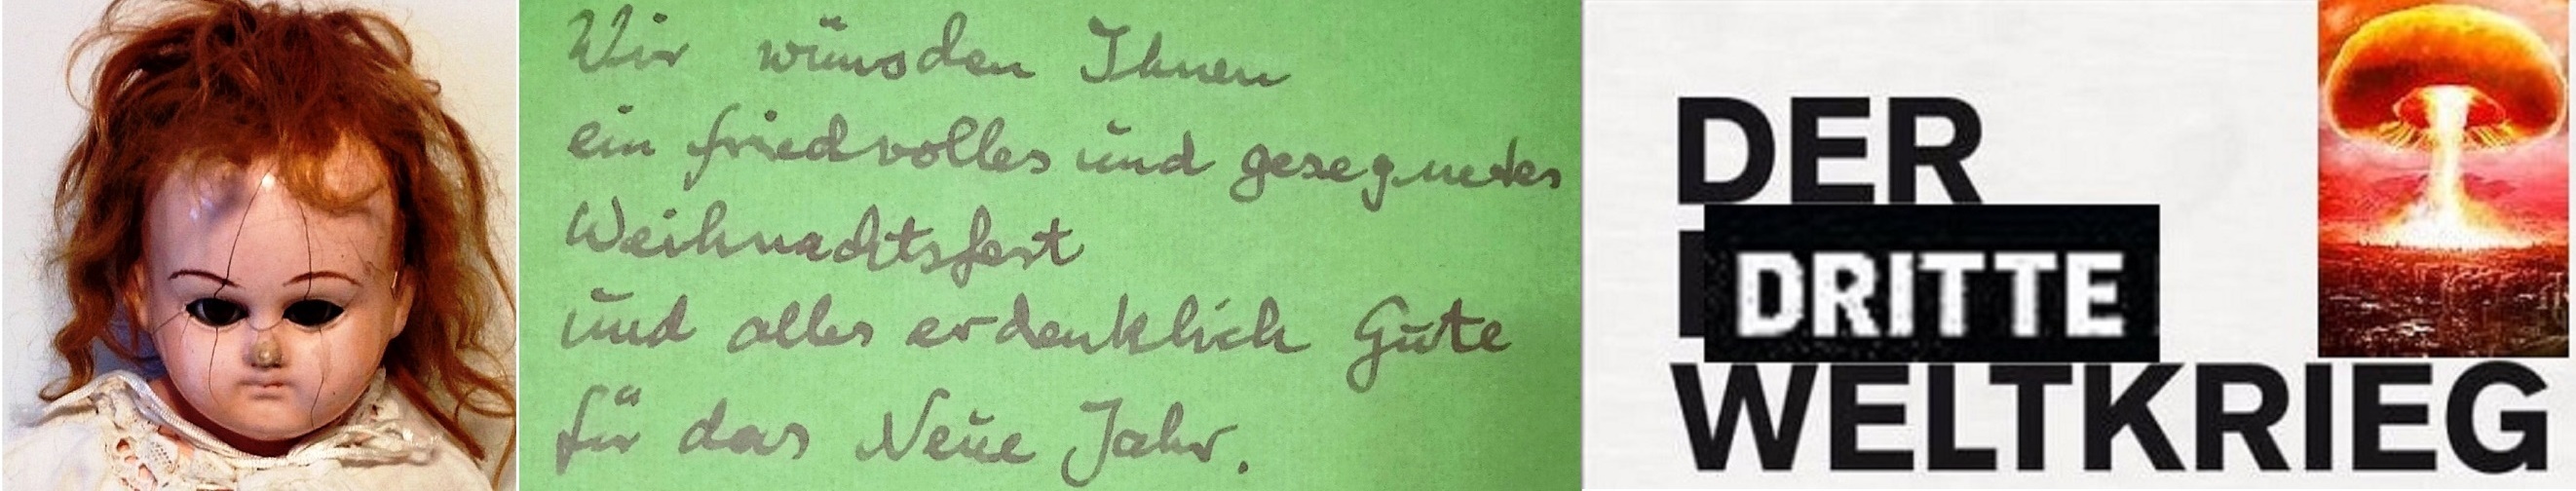 Wir wünschen Ihnen
ein friedvolles und gesegnetes
Weihnachtsfest
und alles erdenklich Gute
für das Neue Jahr.
DER
DRITTE
WELTKRIEG